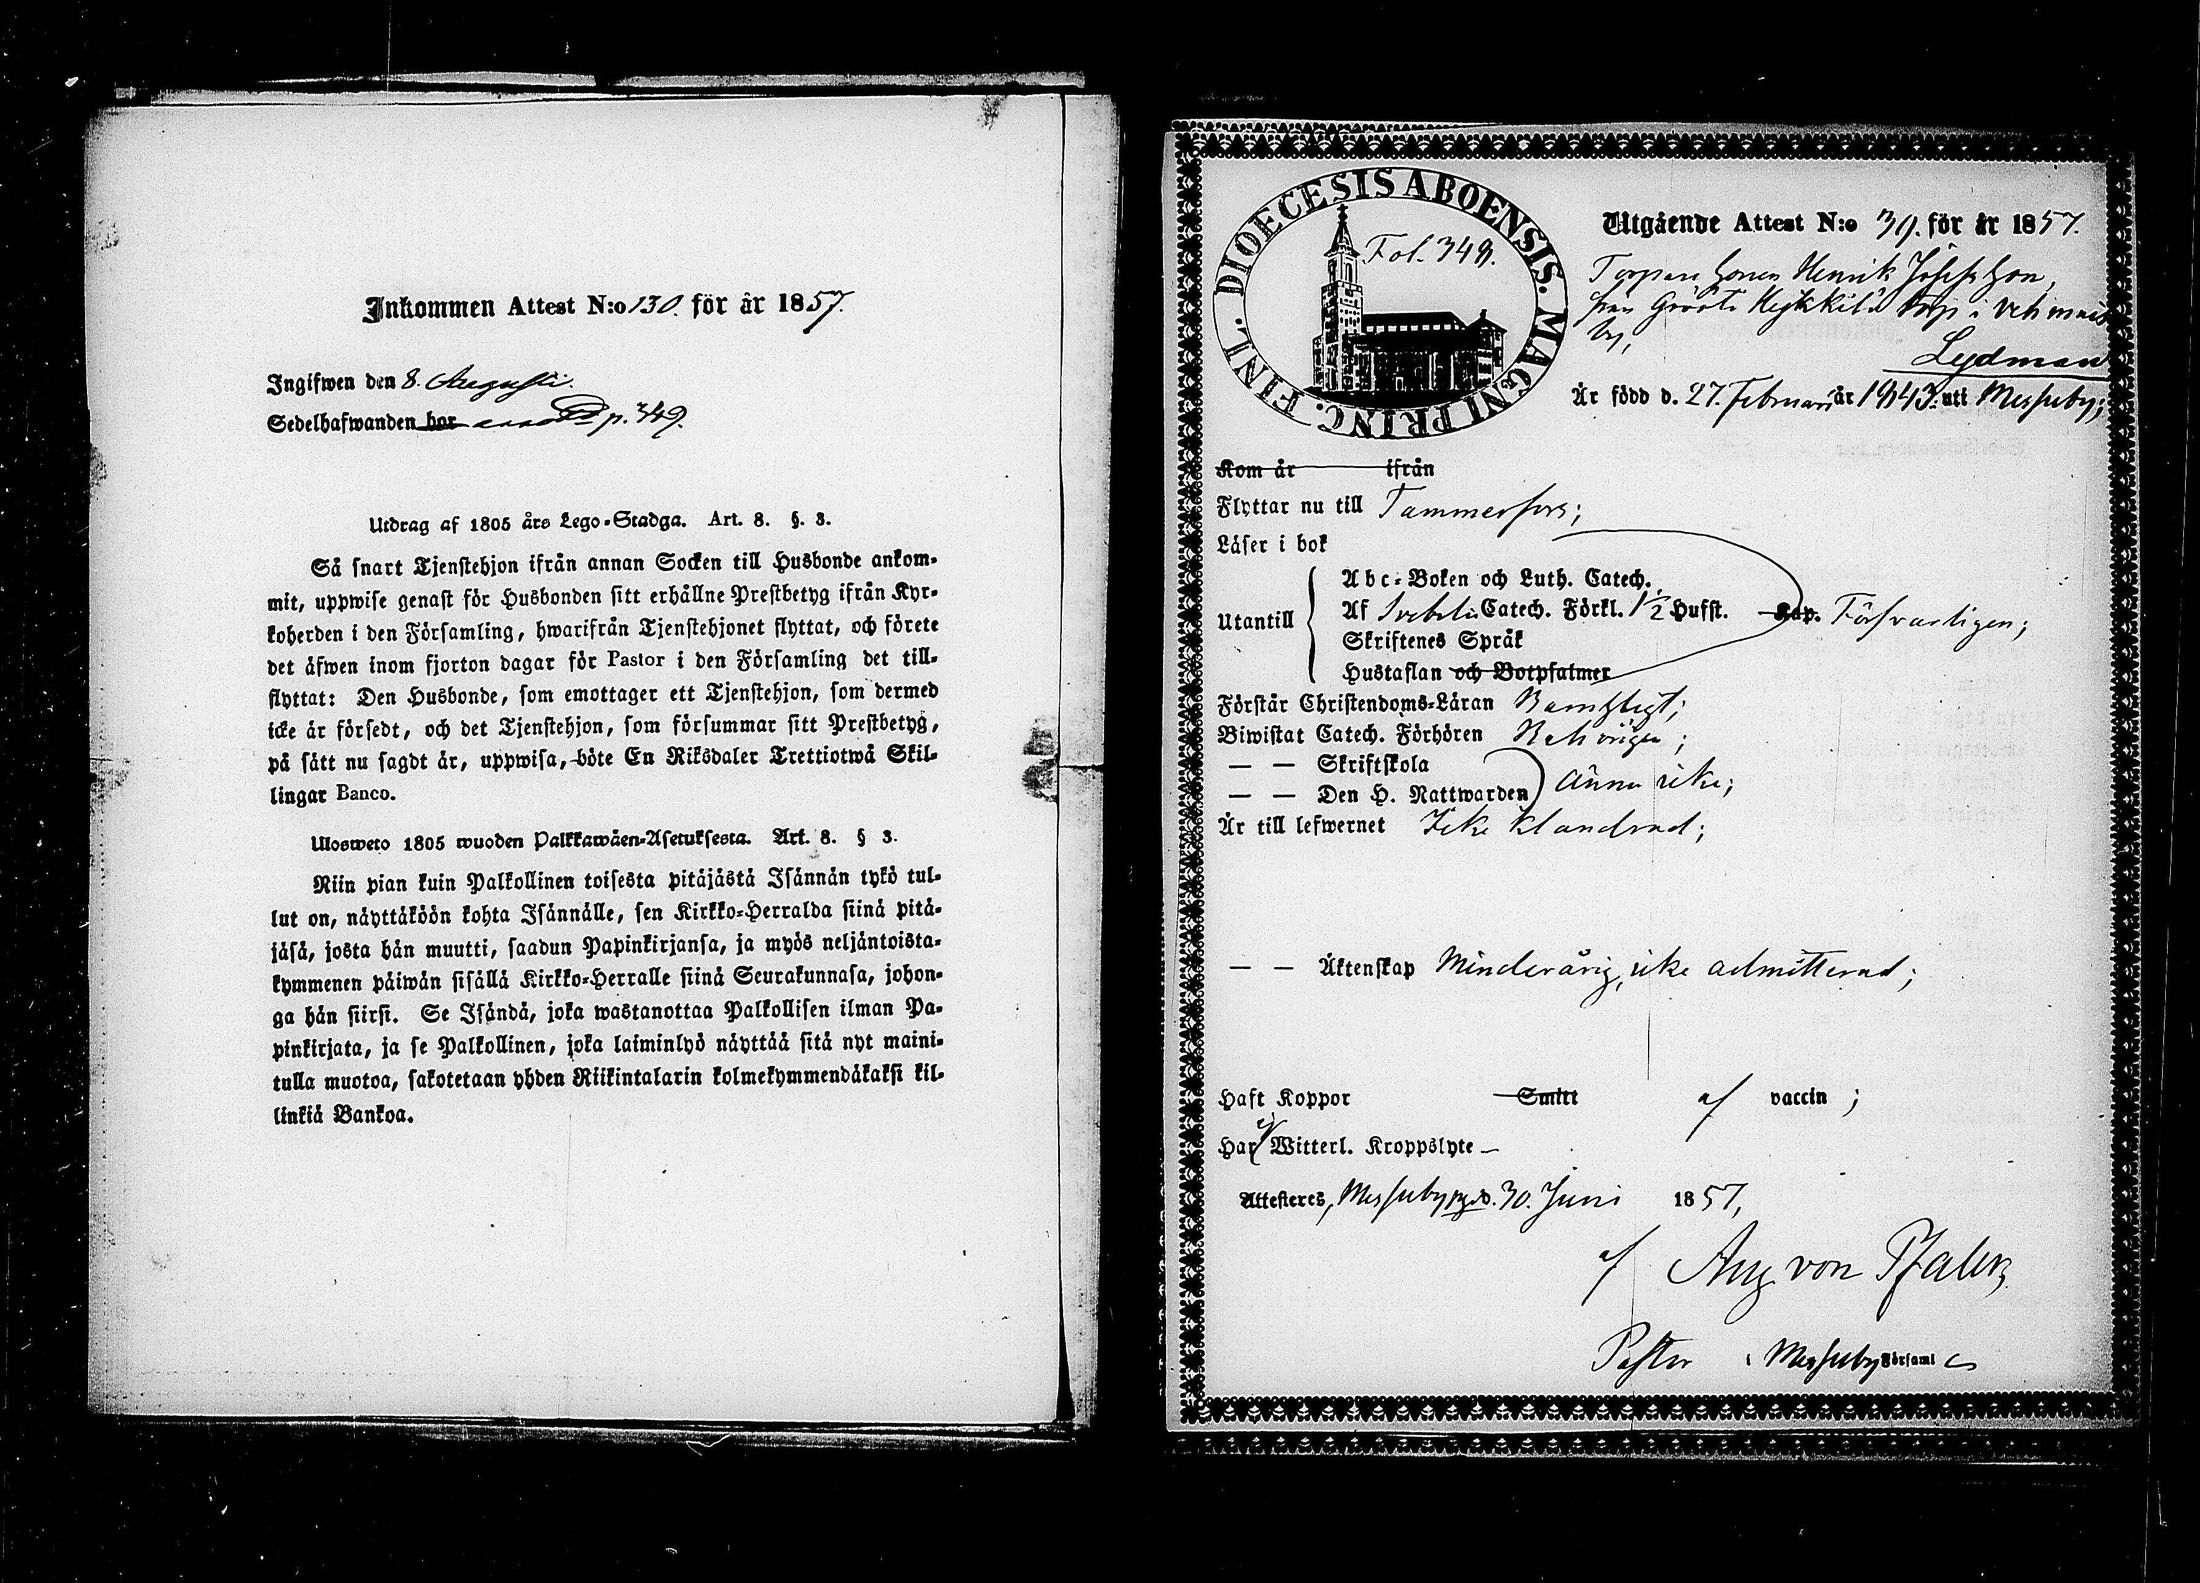 Inkommen Attest N:o 130. för år 1857.
Ingifwen den 8. Augusti.
Sedelhafwanden bor p. 349.
Utdrag af 1805 års Lego-Stadga. Art. 8. §. 3.
Så snart Tjenstehjon ifrån annan Socken till Husbonde ankom-
mit, uppwise genast för Husbonden sitt erhållne Prestbetyg ifrån Kyr-
koherden i den Församling, hwarifrån Tjenstehjonet flyttat, och förete
det äfwen inom fjorton dagar för Pastor i den Församling det till-
flyttat: Den Husbonde, som emottager ett Tjenstehjon, som dermed
icke är försedt, och det Tjenstehjon, som försummar sitt Prestbetyg,
på sätt nu sagdt är, uppwisa, böte En Riksdaler Trettiotwå Skil-
lingar Banco.
Ulosweto 1805 wuoden Palkkawäen-Asetuksesta. Art. 8. § 3.
Niin pian kuin Palkollinen toisesta pitäjästä Isännän tykö tul-
lut on, näyttäköön kohta Isännälle, sen Kirkko-Herralda siinä pitä-
jäsä, josta hän muutti, saadun Papinkirjansa, ja myös neljäntoista-
kymmenen päiwän sisällä Kirkko-Herralle siinä Seurakunnasa, johon-
ga hän siirsi. Se Isändä, joka wastanottaa Palkollisen ilman Pa-
pinkirjata, ja se Palkollinen, joka laiminlyö näyttää sitä nyt maini-
tulla muotoa, sakotetaan yhden Riikintalarin kolmekymmendäkaksi kil-
linkiä Bankoa.
DIOECESIS ABOENSIS. MAGNI PRINC. FINL.
Fol. 349.
Utgående Attest N:o 39. för år 1857.
Torpare Sonen Henrik Josefsson
från Grööti Heikkilä torp i Vehmais
by,
Lydman
Är född d. 27. Februari år 1843. uti Messuby;
Kom år ifrån
Flyttar nu till Tammerfors;
Läser i bok
Utantill
Abc-Boken och Luth. Catech.
Af Svebelii Catech. Förkl. 1½ Hufst. Kap. Försvarligen;
Skriftenes Språk
Hustaflan och Botpsalmer
Förstår Christendoms-Läran Nämgligt;
Biwistat Catech. Förhören Behörigen;
— — Skriftskola
— — Den H. Nattwarden ännu icke;
Är till lefwernet Icke klandrad;
— — Äktenskap Minderårig, icke admitterad;
Haft Koppor Smitt af vaccin;
Har ej Witterl. Kroppslyte —
Attesteres, Messuby pgd. 30. Juni 1857,
af Aug. von Pfaler
Pastor i Messuby Församl